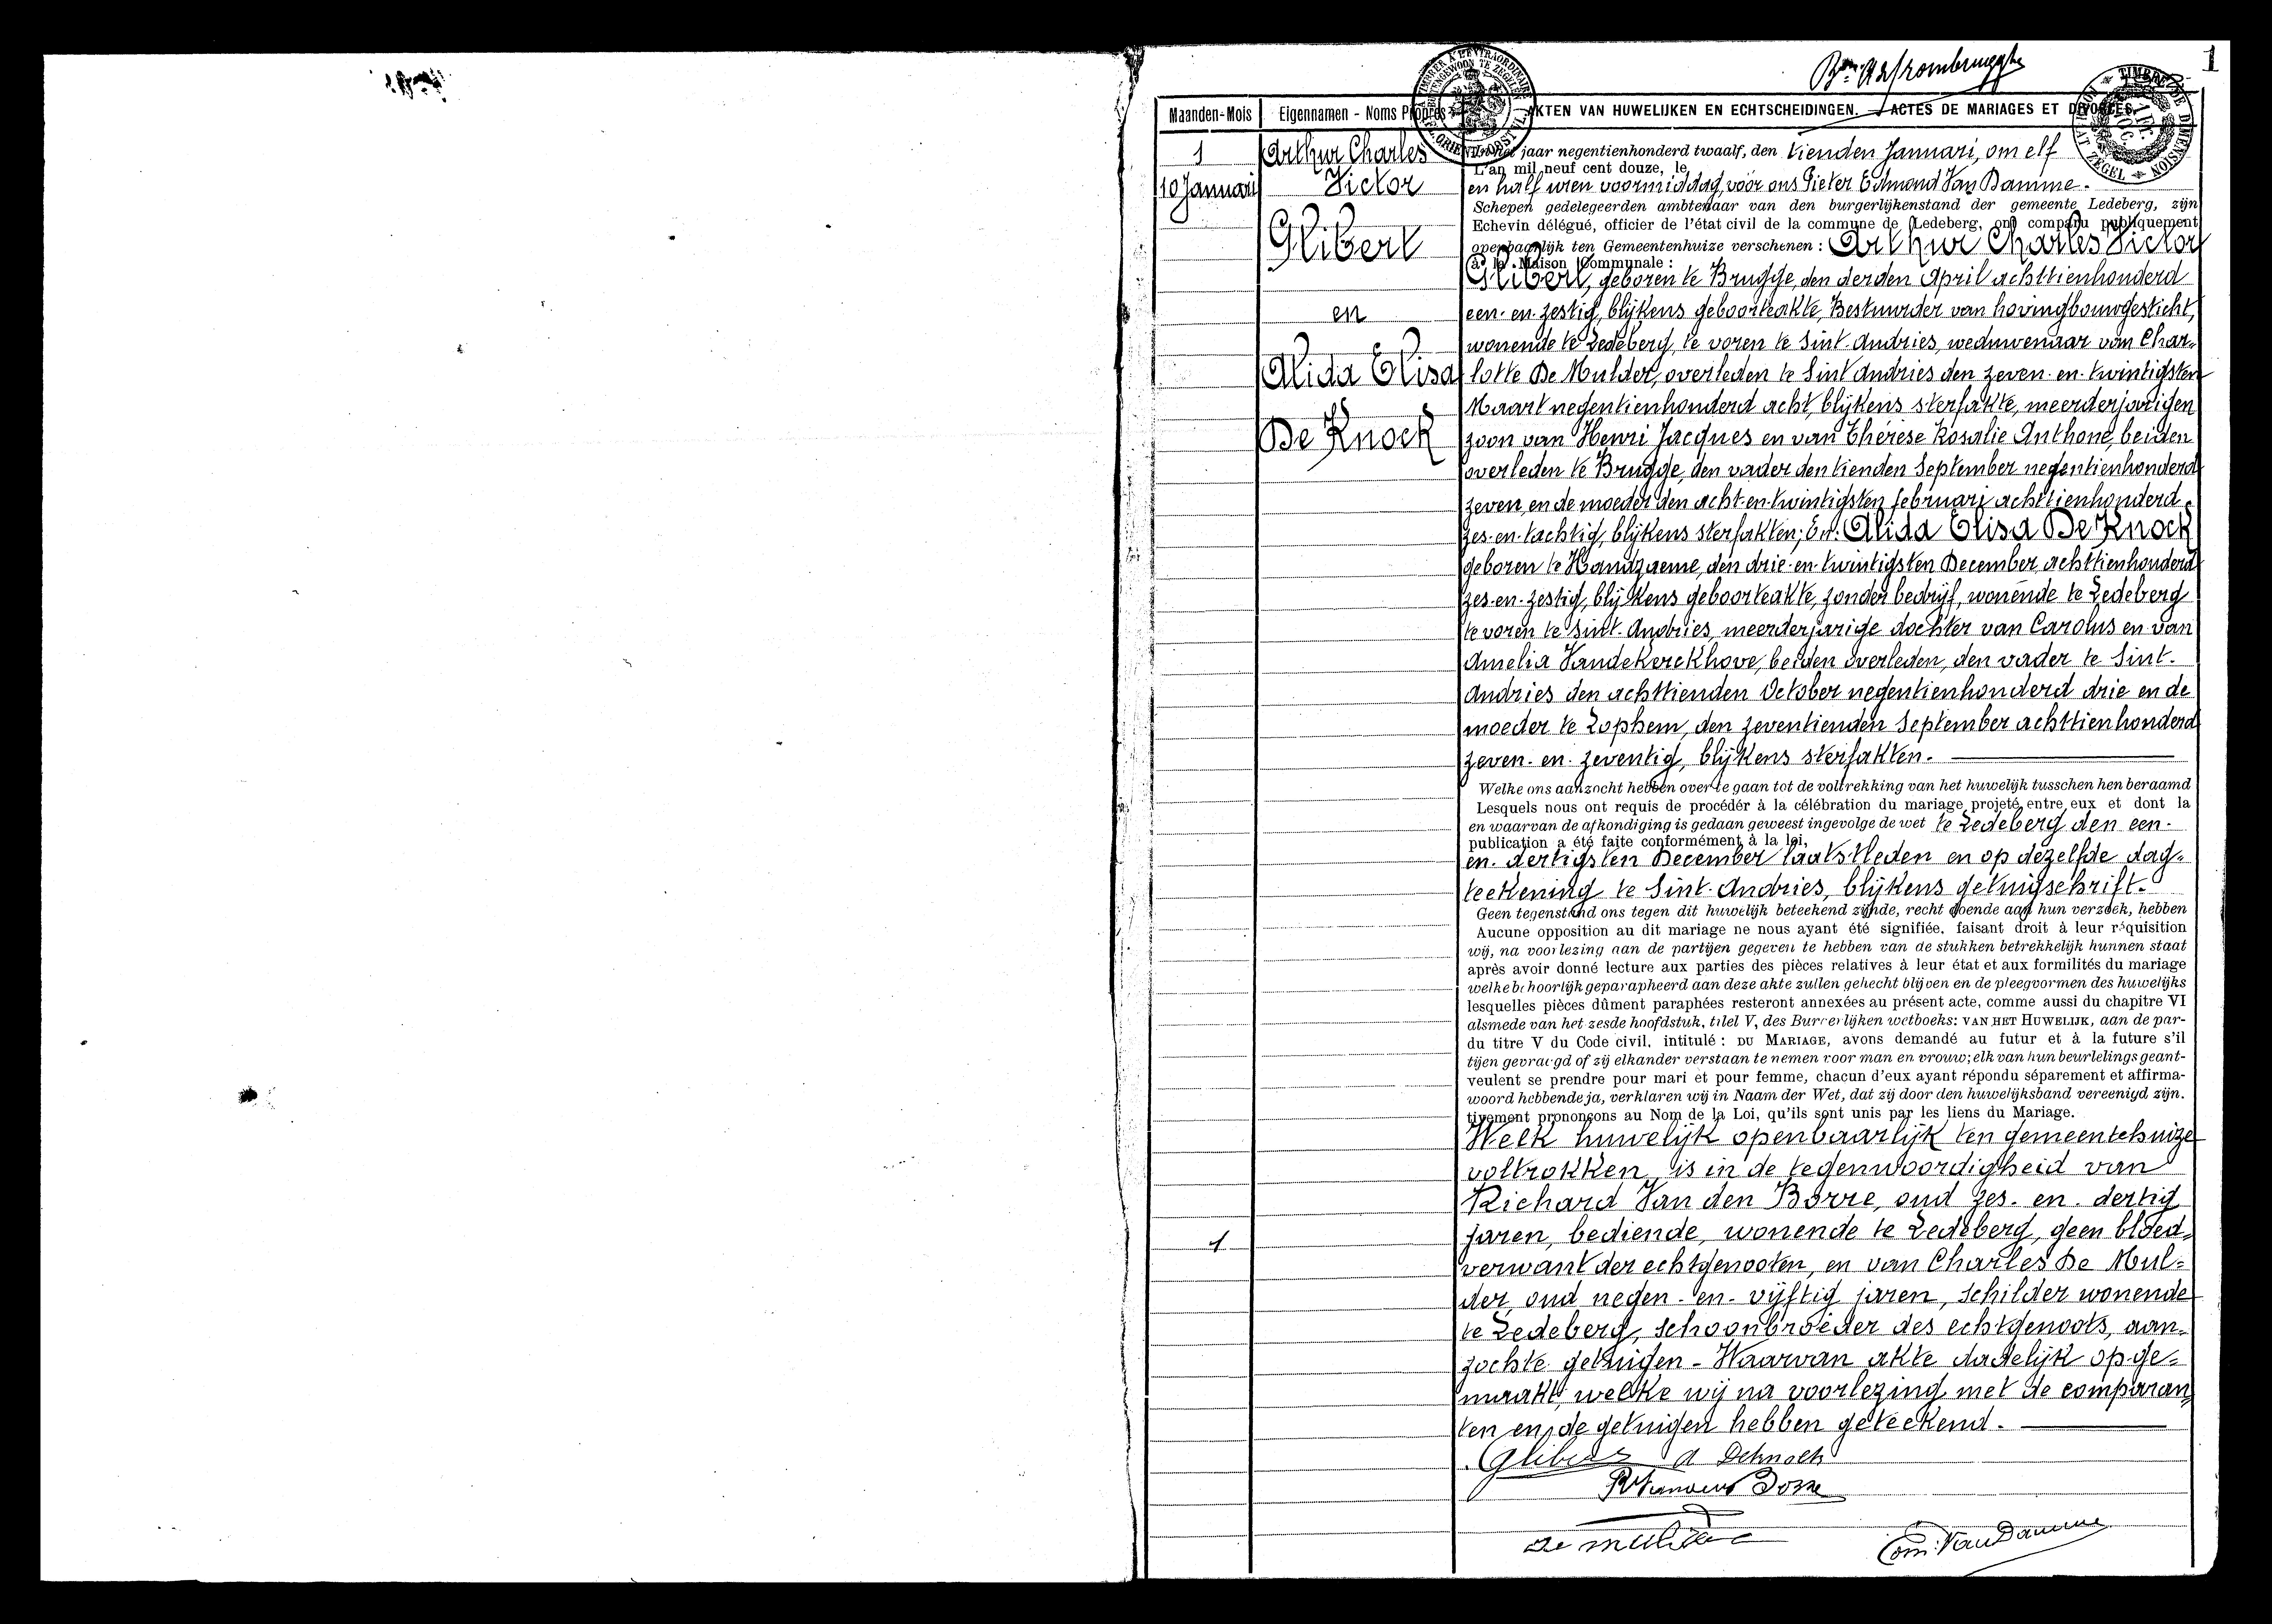 1
Maanden-Mois
Eigennamen - Noms Propres
AKTEN VAN HUWELIJKEN EN ECHTSCHEIDINGEN. — ACTES DE MARIAGES ET DIVORCES.
1
10 Januari
Arthur Charles
Victor
Glibert
en
Alida Elisa
De Knock
1
jaar negentienhonderd twaalf, den tienden Januari, om elf
L'an mil neuf cent douze, le
en half uren voormiddag, vóór ons Pieter Edmond Van Damme.
Schepen gedelegeerden ambtenaar van den burgerlijkenstand der gemeente Ledeberg, zijn
Echevin délégué, officier de l'état civil de la commune de Ledeberg, ont comparu publiquement
openbaarlijk ten Gemeentenhuize verschenen : Arthur Charles Victor
à la Maison Communale :
Glibert, geboren te Brugge, den derden April achttienhonderd
een-en-zestig, blijkens geboorteakte, Bestuurder van hovingbouwgesticht,
wonende te Ledeberg, te voren te Sint-Andries, weduwenaar van Char-
lotte De Mulder, overleden te Sint Andries den zeven-en-twintigsten
Maart negentienhonderd acht, blijkens sterfakte, meerderjarigen
zoon van Henri Jacques en van Thérèse Rosalie Anthone, beiden
overleden te Brugge, den vader den tienden September negentienhonderd
zeven, en de moeder den acht-en-twintigsten februari achttienhonderd
zes-en-tachtig, blijkens sterfakten; En: Alida Elisa De Knock
geboren te Handzaeme, den drie-en-twintigsten December achttienhonderd
zes-en-zestig, blijkens geboorteakte, zonder bedrijf, wonende te Ledeberg
te voren te Sint-Andries, meerderjarige dochter van Carolus en van
Amelia Vandekerckhove, beiden overleden, den vader te Sint-
Andries den achttienden October negentienhonderd drie en de
moeder te Lophem, den zeventienden September achttienhonderd
zeven-en-zeventig, blijkens sterfakten.
Welke ons aanzocht hebben over te gaan tot de voltrekking van het huwelijk tusschen hen beraamd
Lesquels nous ont requis de procédér à la célébration du mariage projeté entre eux et dont la
en waarvan de afkondiging is gedaan geweest ingevolge de wet te Ledeberg den een-
publication a été faite conformément à la loi,
en-dertigsten December laatstleden en op dezelfde dag-
teekening te Sint-Andries, blijkens getuigschrift.
Geen tegenstand ons tegen dit huwelijk beteekend zijnde, recht doende aan hun verzoek, hebben
Aucune opposition au dit mariage ne nous ayant été signifiée. faisant droit à leur réquisition
wij, na voorlezing aan de partijen gegeven te hebben van de stukken betrekkelijk hunnen staat
après avoir donné lecture aux parties des pièces relatives à leur état et aux formilités du mariage
welke behoorlijk geparapheerd aan deze akte zullen gehecht blijven en de pleegvormen des huwelijks
lesquelles pièces dûment paraphées resteront annexées au présent acte, comme aussi du chapitre VI
alsmede van het zesde hoofdstuk, titel V, des Burgerlijken wetboeks: VAN HET HUWELIJK, aan de par-
du titre V du Code civil, intitulé : DU MARIAGE, avons demandé au futur et à la future s'il
tijen gevraagd of zij elkander verstaan te nemen voor man en vrouw; elk van hun beurlelings geant-
veulent se prendre pour mari et pour femme, chacun d'eux ayant répondu séparement et affirma-
woord hebbende ja, verklaren wij in Naam der Wet, dat zij door den huwelijksband vereenigd zijn.
tivement prononçons au Nom de la Loi, qu'ils sont unis par les liens du Mariage.
Welk huwelijk openbaarlijk ten gemeentehuize
voltrokken is in de tegenwoordigheid van
Richard Van den Borre, oud zes-en-dertig
jaren, bediende, wonende te Ledeberg, geen bloed-
verwant der echtgenooten, en van Charles De Mul-
der, oud negen-en-vijftig jaren, schilder wonende
te Ledeberg, schoonbroeder des echtgenoots, aan-
zochte getuigen - Waarvan akte dadelijk opge-
maakt, welke wij na voorlezing met de comparan-
ten en de getuigen hebben geteekend.
Glibert A Deknock
De Mulder
Edm. Van Damme